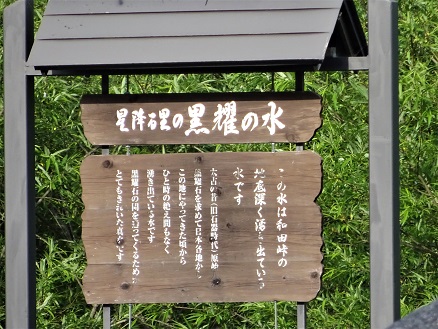 星降る里の黒耀の水
この水は和田峠の
地底深く湧き出ている
水です
太古の昔（旧石器時代）原始
黒耀石を求めて日本各地から
この地にやってきた頃から
ひと時の絶え間もなく
湧き出ている水です
黒耀石の間を通ってくるため
とてもきれいた真水です